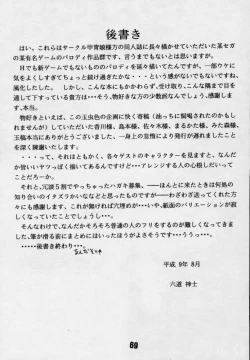 後書き
はい、これらはサークル甲冑娘様方の同人誌に長々描かせていただいた某セガ
の某有名ゲームのパロディ作品群です、言うまでもないとは思いますが。
日でも新ゲームでもないもののパロディを延々描いてたんですが、一部ウケに
気をよくしすぎてちょっと続け過ぎたかな・・・という感がないでもないですね、
風化したし。しかし、こんな本にもかかわらず、受け入れ、こんな隅まで目を
通して下すっている貴方は・・・そう、物好きな方の少数派なんでしょう、感謝しま
す、本当。
物好きといえば、この玉虫色の企画に快く寄稿（迫っちに恫喝されたのかもし
れませんが）していただいた香川様、島本様、佐々木様、まるかた様、みた森様、
玉稿本当にありがとうございました。一身上の怠惰により発行が遅れましたこと
を深く陳謝いたします。
・・・って、それはともかく、各々ゲストのキャラクターを見ますと、なんだ
か皆いいヤツっぽく描いてあるんですけれど・・・アレンジする人の心根しだいだ
ってことでしょうか。
それと、冗談５割でやっちゃったハガキ募集、――ほんとに来たときは何処の
知り合いのイタズラかななどと思ったものですが――わざわざ送ってくれた方々
にも感謝します、これが無ければ穴埋めが・・・いや、紙面のバリエーションが寂し
くなっていたことでしょうし・・・。
そんなわけで、なんだかそろそろ普通の人のフリをするのが難しくなってきま
した、筆が滑る前にまとめにはいったほうがよさそうです・・・ううっ・・・。
・・・・・後書き終わり・・・。
平成 9年 8月
六道 神士
69